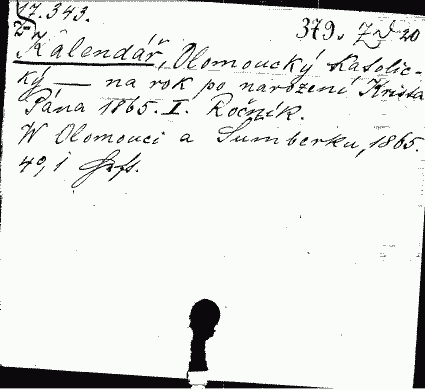 17.343.
379. 7d 20
Kalendář, Olomoucký Katolic-
ký — na rok po narození Krista
Pána 1865. I. Ročník.
W Olomouci a Šumberku, 1865.
4°, 1